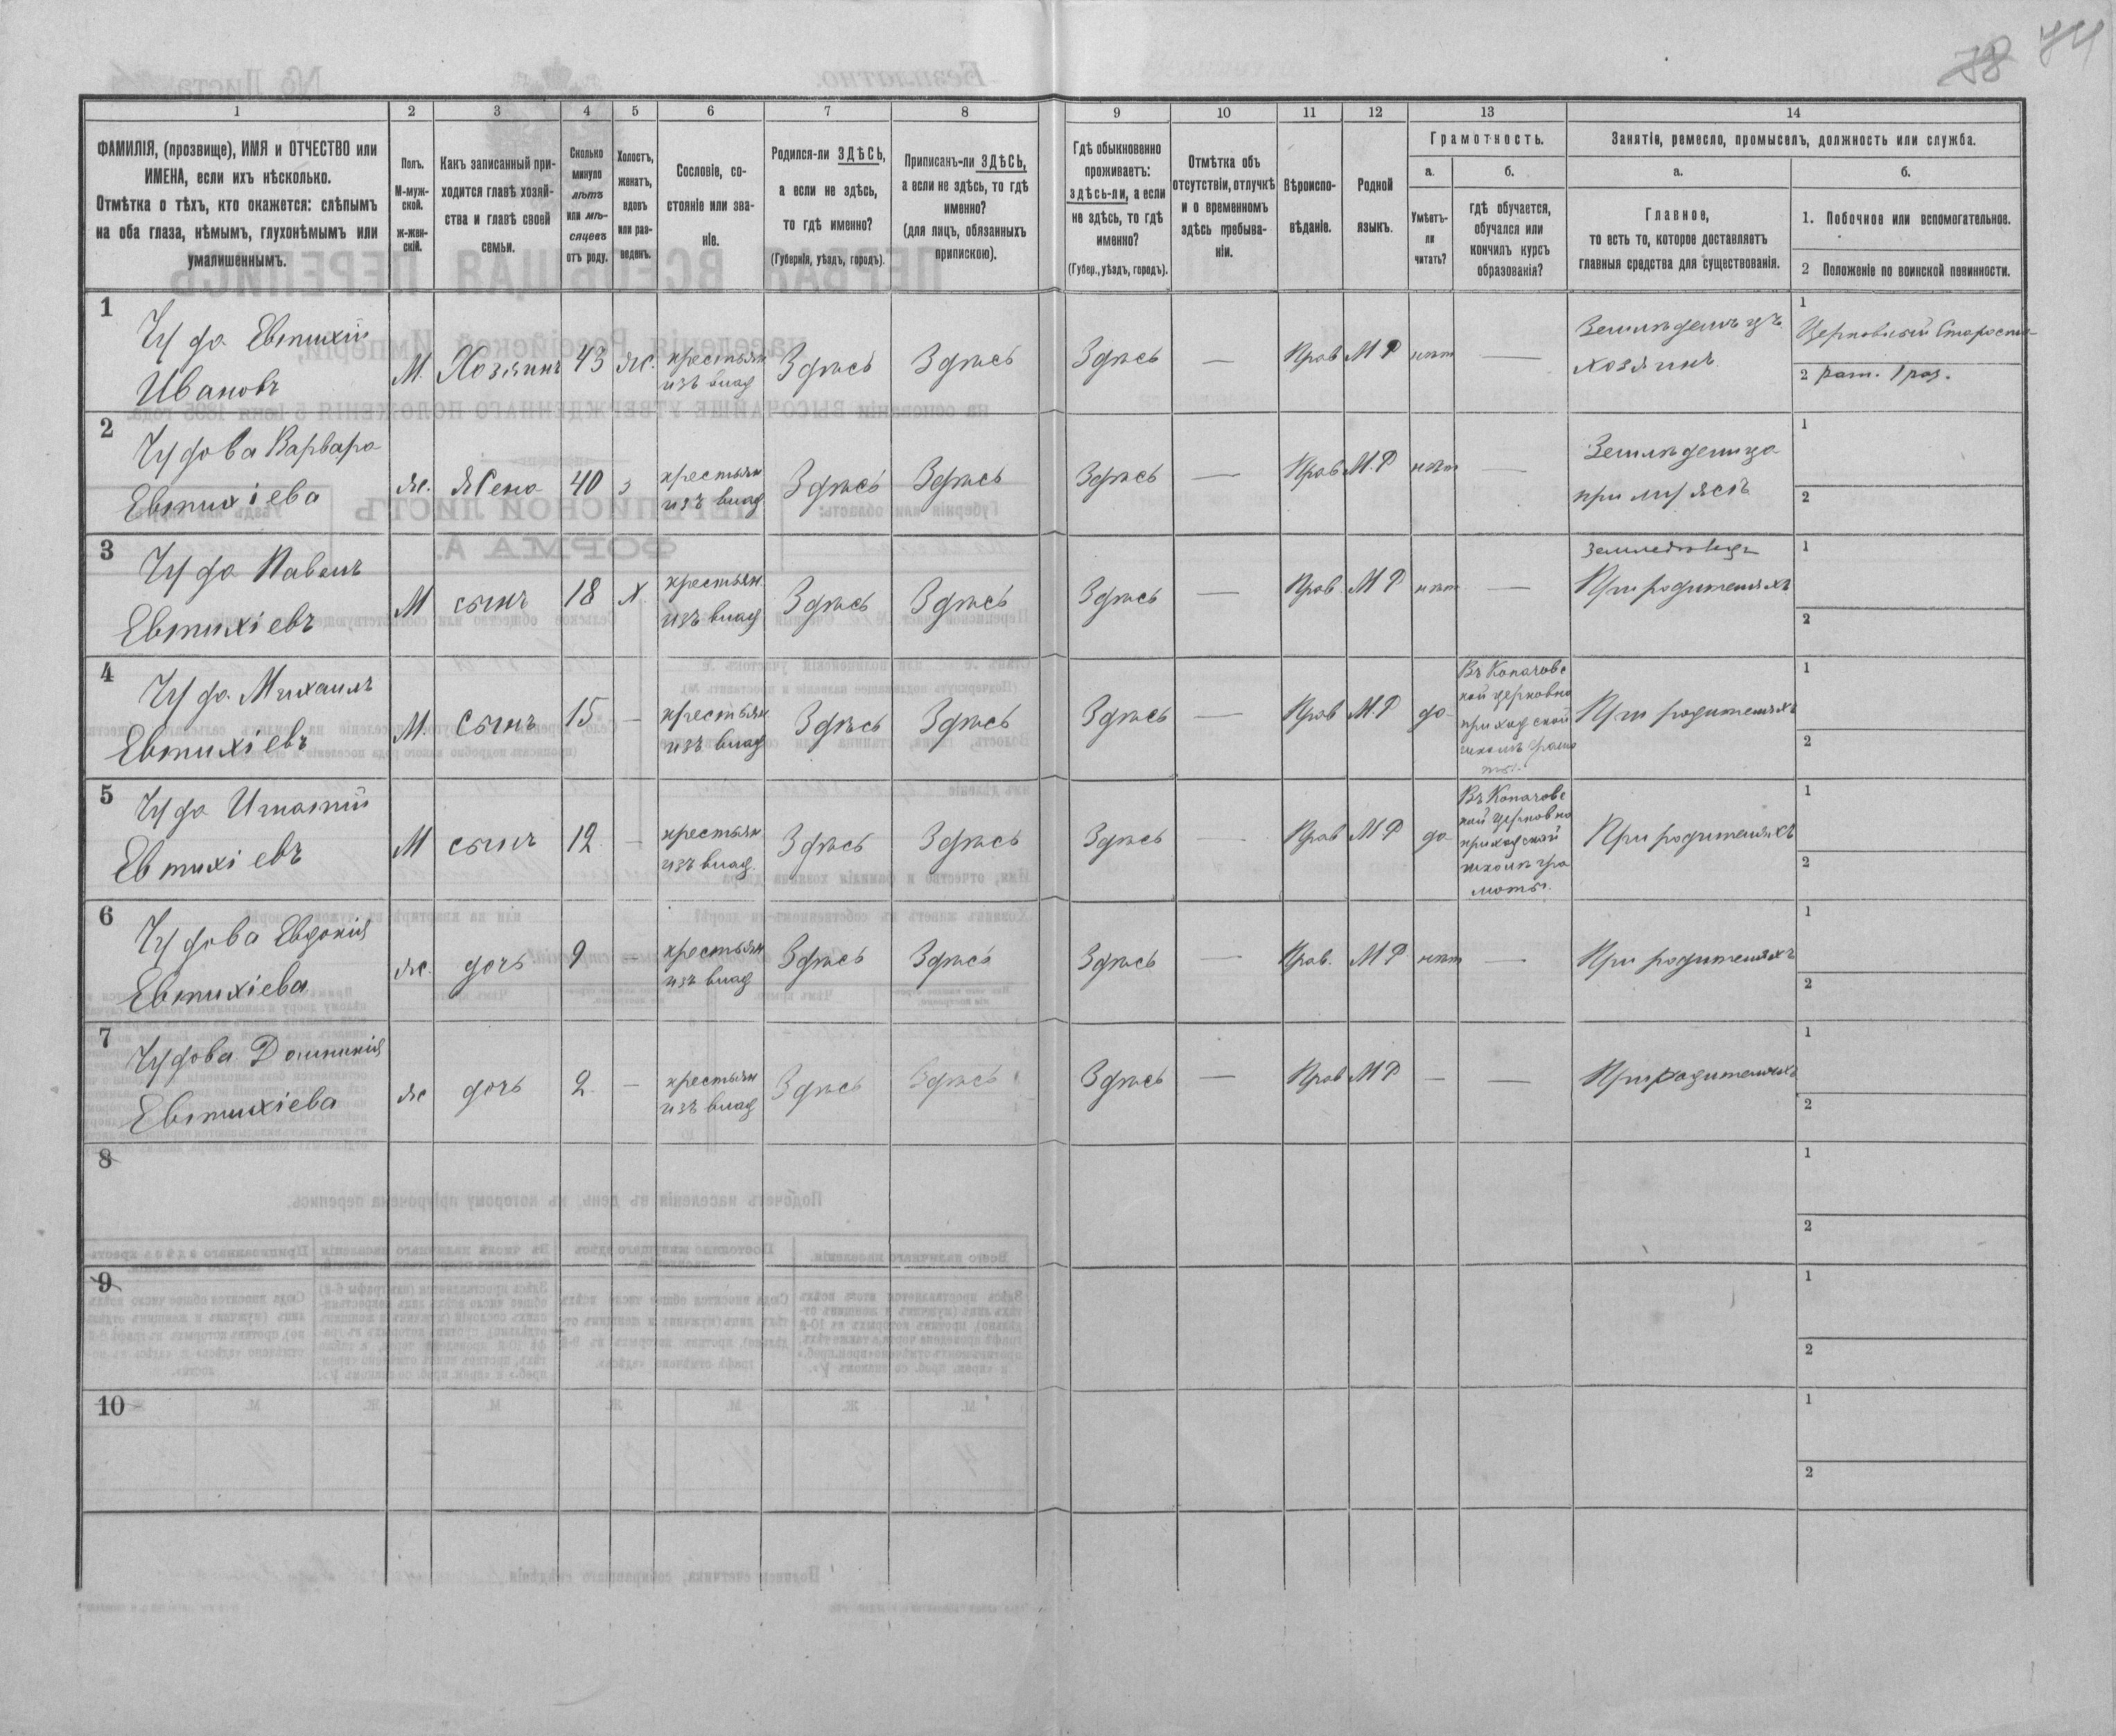 78 74
1 2 3 4 5 6 7 8 9 10 11 12 13 14
ФАМИЛІЯ, (прозвище), ИМЯ и ОТЧЕСТВО или
ИМЕНА, если ихъ нѣсколько.
Отмѣтка о тѣхъ, кто окажется: слѣпымъ
на оба глаза, нѣмымъ, глухонѣмымъ или
умалишеннымъ.
Полъ.
М-муж-
ской.
Ж-жен-
скій.
Какъ записанный при-
ходится главѣ хозяй-
ства и главѣ своей
семьи.
Сколько
минуло
лѣтъ
или мѣ-
сяцевъ
отъ роду.
Холостъ,
женатъ,
вдовъ
или раз-
веденъ.
Сословіе, со-
стояніе или зва-
ніе.
Родился-ли ЗДѢСЬ,
а если не здѣсь,
то гдѣ именно?
(Губернія, уѣздъ, городъ).
Приписанъ-ли ЗДѢСЬ,
а если не здѣсь, то гдѣ
именно?
(для лицъ, обязанныхъ
припискою).
Гдѣ обыкновенно
проживаетъ:
здѣсь-ли, а если
не здѣсь, то гдѣ
именно?
(Губер., уѣздъ, городъ).
Отмѣтка объ
отсутствіи, отлучкѣ
и о временномъ
здѣсь пребыва-
ніи.
Вѣроиспо-
вѣданіе.
Родной
языкъ.
Грамотность.
а.
Умѣетъ-
ли
читать?
б.
гдѣ обучается,
обучался или
кончилъ курсъ
образованія?
Занятія, ремесло, промыселъ, должность или служба.
а.
Главное,
то есть то, которое доставляетъ
главныя средства для существованія.
б.
1. Побочное или вспомогательное.
2 Положеніе по воинской повинности.
1
Чудо Евтихій
Ивановъ
М. Хозяинъ 43 ж. крестьян
изъ влад
Здѣсь Здѣсь Здѣсь — Прав М Р нѣт —
Земледѣлецъ
хозяинъ
1 Церковный Староста
2 рат. 1 раз.
2
Чудова Варвара
Евтихіева
ж. Жена 40 з крестьян
изъ влад
Здѣсь Здѣсь Здѣсь — Прав М.Р нѣт —
Земледѣлица
при мужѣ
1
2
3
Чудо Павелъ
Евтихіевъ
М сынъ 18 х. крестьян
изъ влад
Здѣсь Здѣсь Здѣсь — Прав М Р нѣт —
земледѣлецъ
При родителяхъ
1
2
4
Чудо Михаилъ
Евтихіевъ
М. Сынъ 15 — крестьян
изъ влад
Здѣсь Здѣсь Здѣсь — Прав М.Р да
Въ Копачовс
кой церковно
приходской
школѣ грамо
ты.
При родителяхъ
1
2
5
Чудо Игнатій
Евтихіевъ
М сынъ 12 — крестьян
изъ влад.
Здѣсь Здѣсь Здѣсь — Прав М Р да
Въ Копачовс
кой церковно
приходской
школѣ гра
моты.
При родителяхъ
1
2
6
Чудова Евдокія
Евтихіева
ж. дочь 9 — крестьян
изъ влад
Здѣсь Здѣсь Здѣсь — Прав. М Р нѣт —
При родителяхъ
1
2
7
Чудова Домникія
Евтихіева
ж дочь 2 — крестьян
изъ влад
Здѣсь Здѣсь Здѣсь — Прав М Р — —
При родителяхъ
1
2
8
1
2
9
1
2
10
1
2